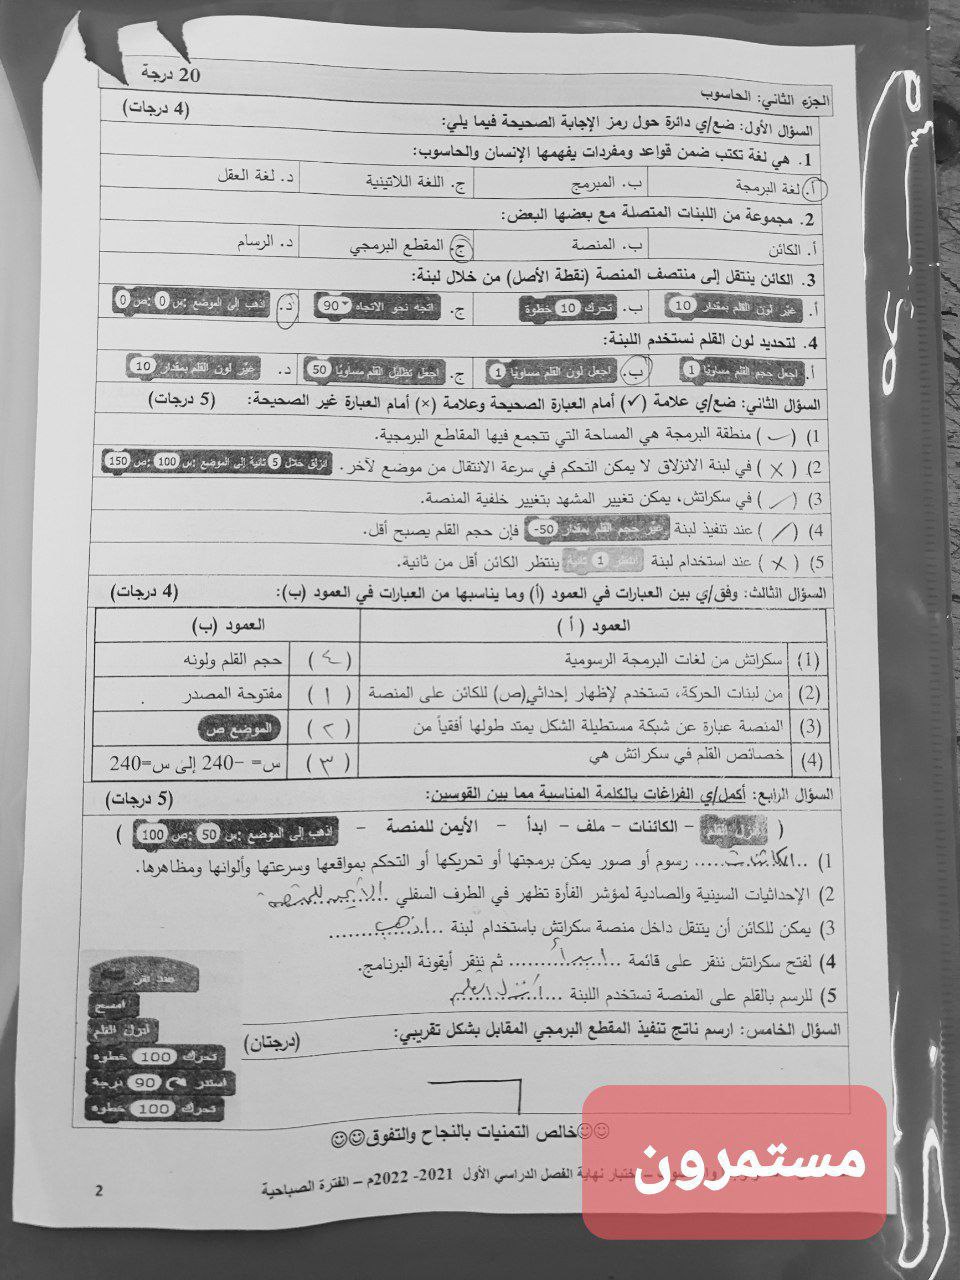 الجزء الثاني: الحاسوب 20 درجة
السؤال الأول: ضع/ي دائرة حول رمز الإجابة الصحيحة فيما يلي: (4 درجات)
1. هي لغة تكتب ضمن قواعد ومفردات يفهمها الإنسان والحاسوب:
أ. لغة البرمجة ب. المبرمج ج. اللغة اللاتينية د. لغة العقل
2. مجموعة من اللبنات المتصلة مع بعضها البعض:
أ. الكائن ب. المنصة ج. المقطع البرمجي د. الرسام
3. الكائن ينتقل إلى منتصف المنصة (نقطة الأصل) من خلال لبنة:
أ. غيّر لون القلم بمقدار 10 ب. تحرك 10 خطوة ج. اتجه نحو الاتجاه 90 د. اذهب إلى الموضع س: 0 ص: 0
4. لتحديد لون القلم نستخدم اللبنة:
أ. اجعل حجم القلم مساويًا 1 ب. اجعل لون القلم مساويًا 1 ج. اجعل تظليل القلم مساويًا 50 د. غيّر لون القلم بمقدار 10
السؤال الثاني: ضع/ي علامة (✓) أمام العبارة الصحيحة وعلامة (×) أمام العبارة غير الصحيحة: (5 درجات)
1) (✓) منطقة البرمجة هي المساحة التي تتجمع فيها المقاطع البرمجية.
2) (×) في لبنة الانزلاق لا يمكن التحكم في سرعة الانتقال من موضع لآخر. انزلق خلال 5 ثانية إلى الموضع س: 100 ص: 150
3) (✓) في سكراتش، يمكن تغيير المشهد بتغيير خلفية المنصة.
4) (✓) عند تنفيذ لبنة غيّر حجم القلم بمقدار 50- فإن حجم القلم يصبح أقل.
5) (×) عند استخدام لبنة انتظر 1 ثانية ينتظر الكائن أقل من ثانية.
السؤال الثالث: وفق/ي بين العبارات في العمود (أ) وما يناسبها من العبارات في العمود (ب): (4 درجات)
العمود (أ) العمود (ب)
(1) سكراتش من لغات البرمجة الرسومية (٤) حجم القلم ولونه
(2) من لبنات الحركة، تستخدم لإظهار إحداثي(ص) للكائن على المنصة (١) مفتوحة المصدر
(3) المنصة عبارة عن شبكة مستطيلة الشكل يمتد طولها أفقياً من (٢) الموضع ص
(4) خصائص القلم في سكراتش هي (٣) س= -240 إلى س=240
السؤال الرابع: أكمل/ي الفراغات بالكلمة المناسبة مما بين القوسين: (5 درجات)
( أنزل القلم – الكائنات – ملف – ابدأ – الأيمن للمنصة – اذهب إلى الموضع س: 50 ص: 100 )
1) الكائنات رسوم أو صور يمكن برمجتها أو تحريكها أو التحكم بمواقعها وسرعتها وألوانها ومظاهرها.
2) الإحداثيات السينية والصادية لمؤشر الفأرة تظهر في الطرف السفلي الأيمن للمنصة
3) يمكن للكائن أن ينتقل داخل منصة سكراتش باستخدام لبنة اذهب
4) لفتح سكراتش ننقر على قائمة ابدأ ثم ننقر أيقونة البرنامج.
5) للرسم بالقلم على المنصة نستخدم اللبنة أنزل القلم
السؤال الخامس: ارسم ناتج تنفيذ المقطع البرمجي المقابل بشكل تقريبي: (درجتان)
عند نقر
امسح
أنزل القلم
تحرك 100 خطوة
استدر 90 درجة
تحرك 100 خطوة
خالص التمنيات بالنجاح والتفوق
اختبار نهاية الفصل الدراسي الأول 2021- 2022م – الفترة الصباحية
2
مستمرون